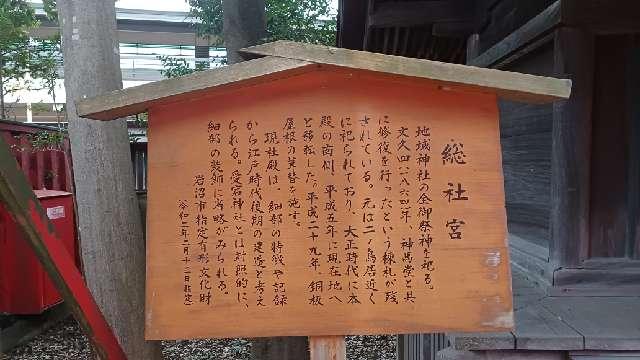 総社宮
地域神社の全御祭神を祀る。
文久四(一八六四)年、神馬堂と共
に修復を行ったという棟札が残
されている。元は二ノ鳥居近く
に祀られており、大正時代に本
殿の南側、平成五年に現在地へ
と移転した。平成二十九年、銅板
屋根の葺替を施す。
現社殿は、細部の特徴や記録
から江戸時代後期の建造と考え
られる。愛宕神社とは対照的に、
細部の装飾に省略がみられる。
岩沼市指定有形文化財
(令和二年二月十二日指定)